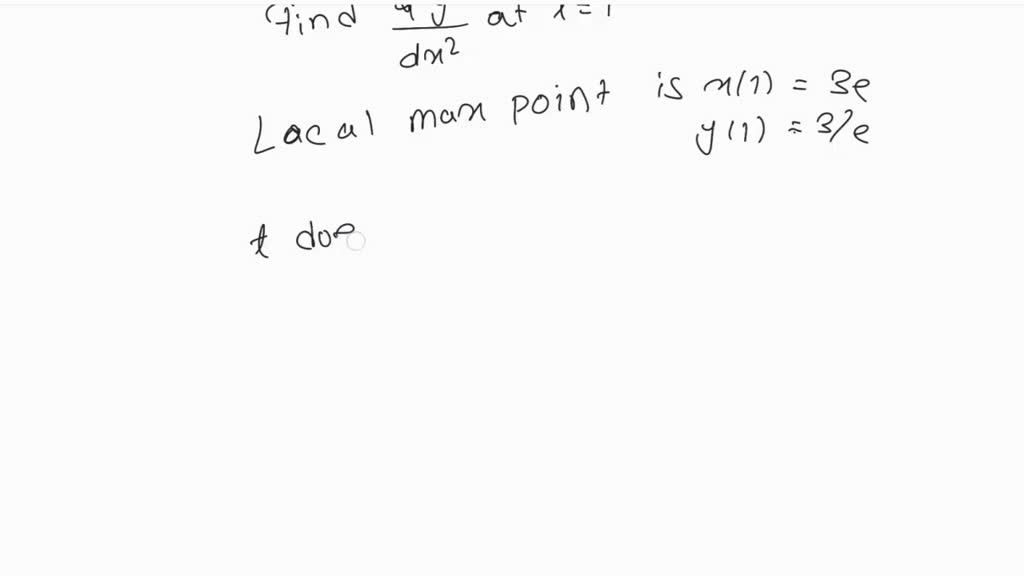 find d²y at t=1
dx²
Lacal max point is x(1) = 3e
y(1) = 3/e
t doe